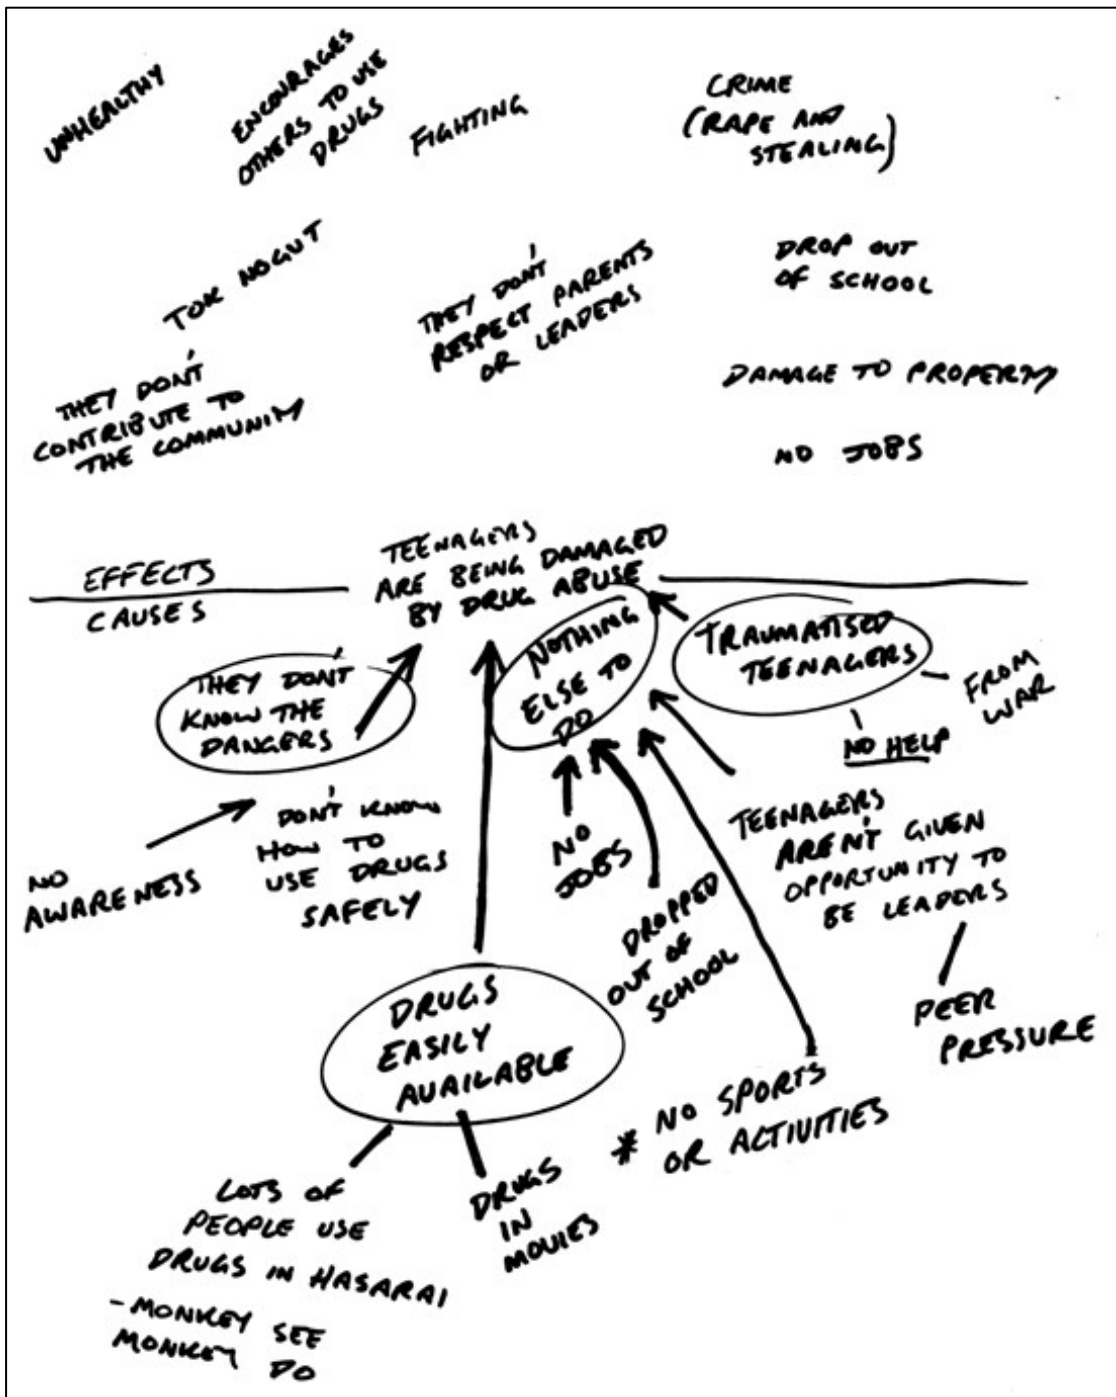 UNHEALTHY
ENCOURAGES
OTHERS TO USE
DRUGS
FIGHTING
CRIME
(RAPE AND
STEALING)
TOK NOGUT
THEY DON'T
RESPECT PARENTS
OR LEADERS
DROP OUT
OF SCHOOL
THEY DON'T
CONTRIBUTE TO
THE COMMUNITY
DAMAGE TO PROPERTY
NO JOBS
TEENAGERS
ARE BEING DAMAGED
BY DRUG ABUSE
EFFECTS
CAUSES
THEY DON'T
KNOW THE
DANGERS
NOTHING
ELSE TO
DO
TRAUMATISED
TEENAGERS
FROM
WAR
NO HELP
NO
AWARENESS
DON'T KNOW
HOW TO
USE DRUGS
SAFELY
NO
JOBS
DROPPED
OUT OF
SCHOOL
TEENAGERS
AREN'T GIVEN
OPPORTUNITY TO
BE LEADERS
PEER
PRESSURE
DRUGS
EASILY
AVAILABLE
* NO SPORTS
OR ACTIVITIES
LOTS OF
PEOPLE USE
DRUGS IN HASARAI
- MONKEY SEE
MONKEY DO
DRUGS
IN
MOVIES